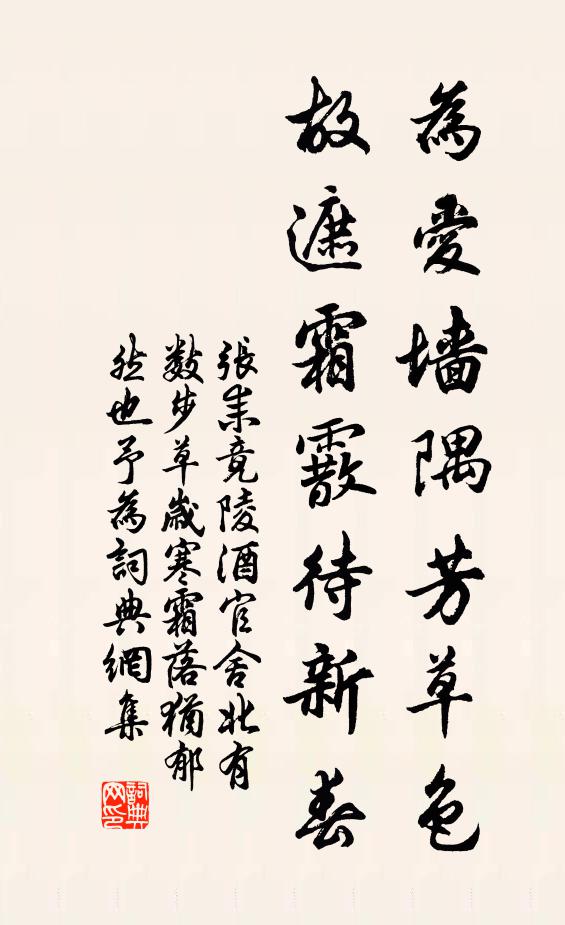 為愛墻隅芳草色
故遮霜霰待新春
張耒竟陵酒官舍北有
數步草歲寒霜落猶郁
然也予為詞典網集
詞典网印